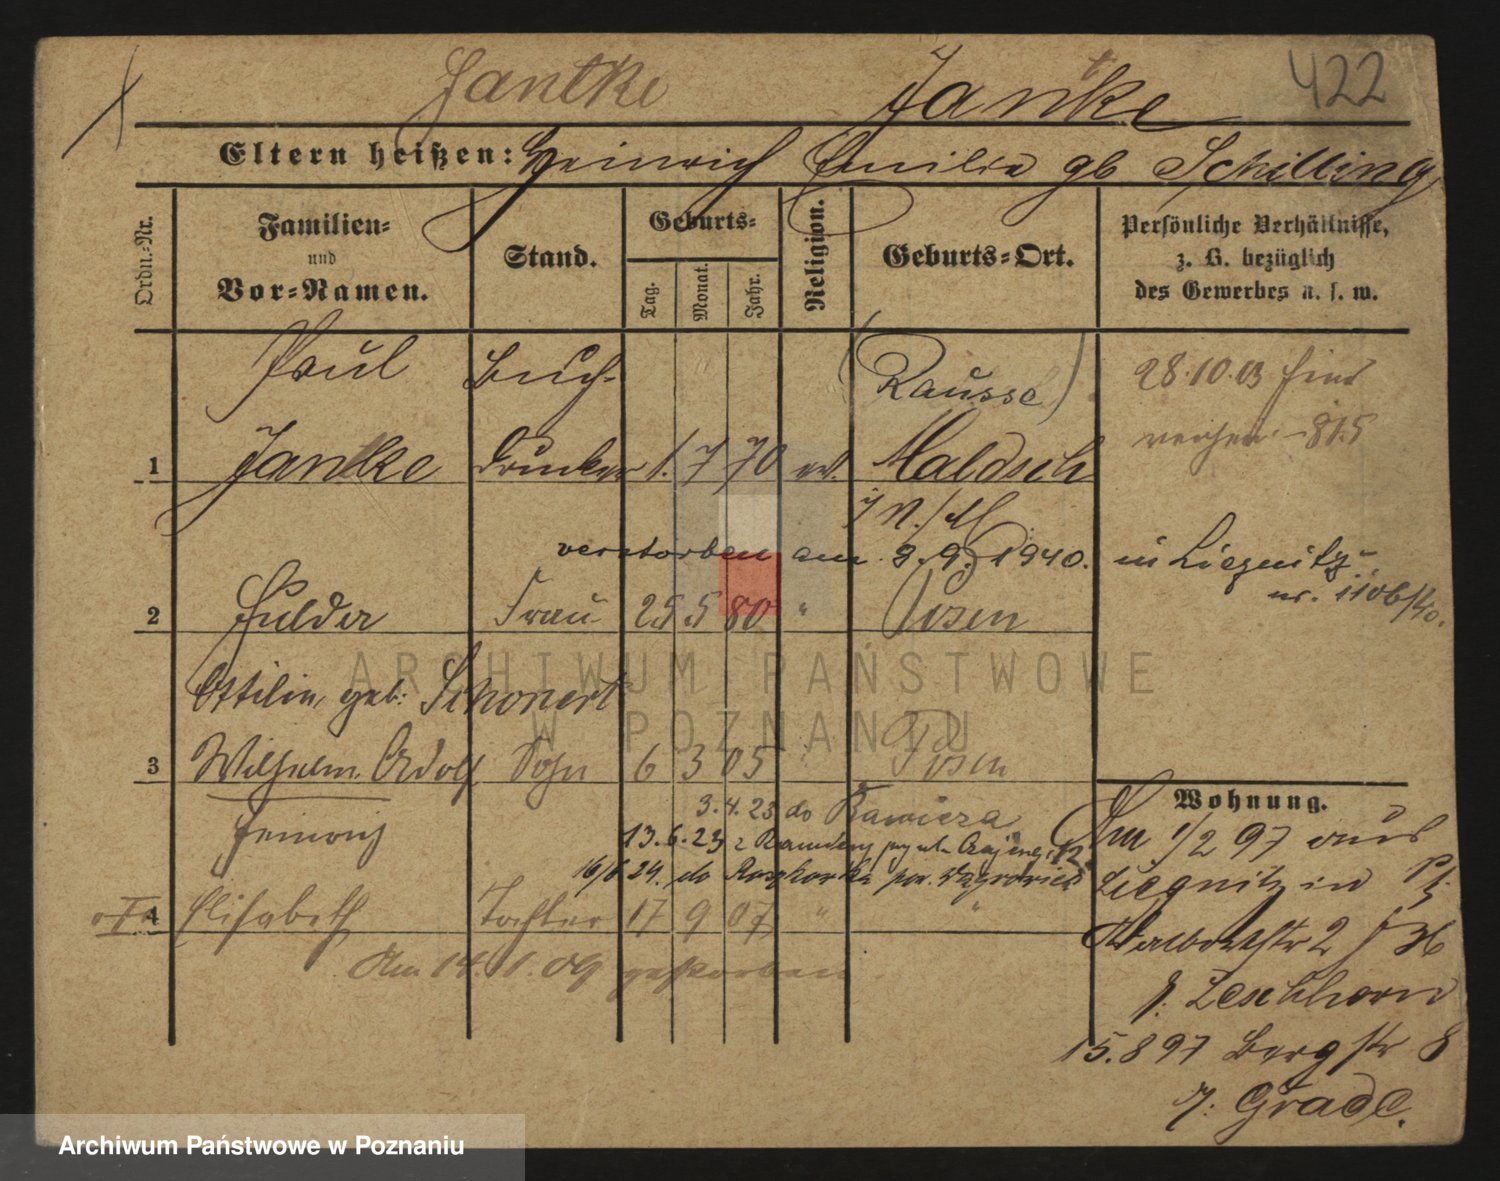 Jantke Jantke 422
Eltern heißen: Heinrich Emilie gb Schilling
Ordn.-Nr.
Familien- und Vor-Namen.
Stand.
Geburts-
Tag. Monat. Jahr.
Religion.
Geburts-Ort.
Persönliche Verhältnisse,
z. B. bezüglich
des Gewerbes u. s. w.
Paul Buch- (Rausse) 28.10.03
1 Jantke drucker 1. 7 70 ev. Maldsch 815
verstorben am 8.9.1940. in Liegnitz
nr. 1106/40.
2 Hulda Frau 25 5 80 " Posen
Ottilie, geb: Schonert
3 Wilhelm Adolf Sohn 6 3 05 " Posen
Heinrich
3.4.23 do Rawicza
13.6.23 z
16/6 24. do
4 Elisabeth Tochter 17 9 07 " "
Am 14.1.09 gestorben
Wohnung.
Am 1/2 97 aus
Liegnitz in
2
J. Leschhorn
15.8 97 Bergstr 8
Grade.
ARCHIWUM PAŃSTWOWE
W POZNANIU
Archiwum Państwowe w Poznaniu